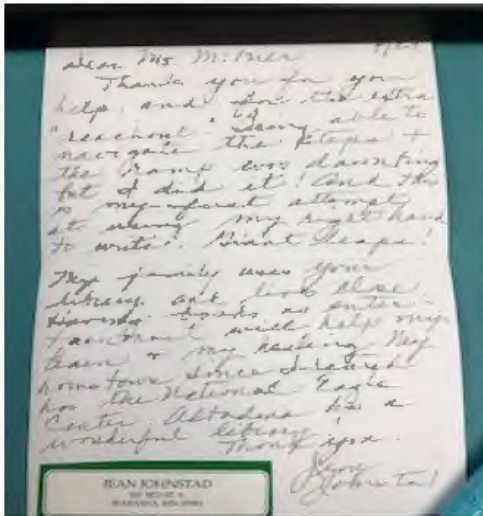 dear Ms. Milner
Thank you for you
help, and for the extra
"reachout". Being able to
navigate the steps +
the ramp was daunting
but I did it! And this
is my first attempt
at using my right hand
to write! Giant leaps!
My family uses your
library and
with help my
brain + my healing. My
hometown since I retired
has the National Eagle
Center. Altadena has a
wonderful library!
Thank you.
Jean
Johnstad
JEAN JOHNSTAD